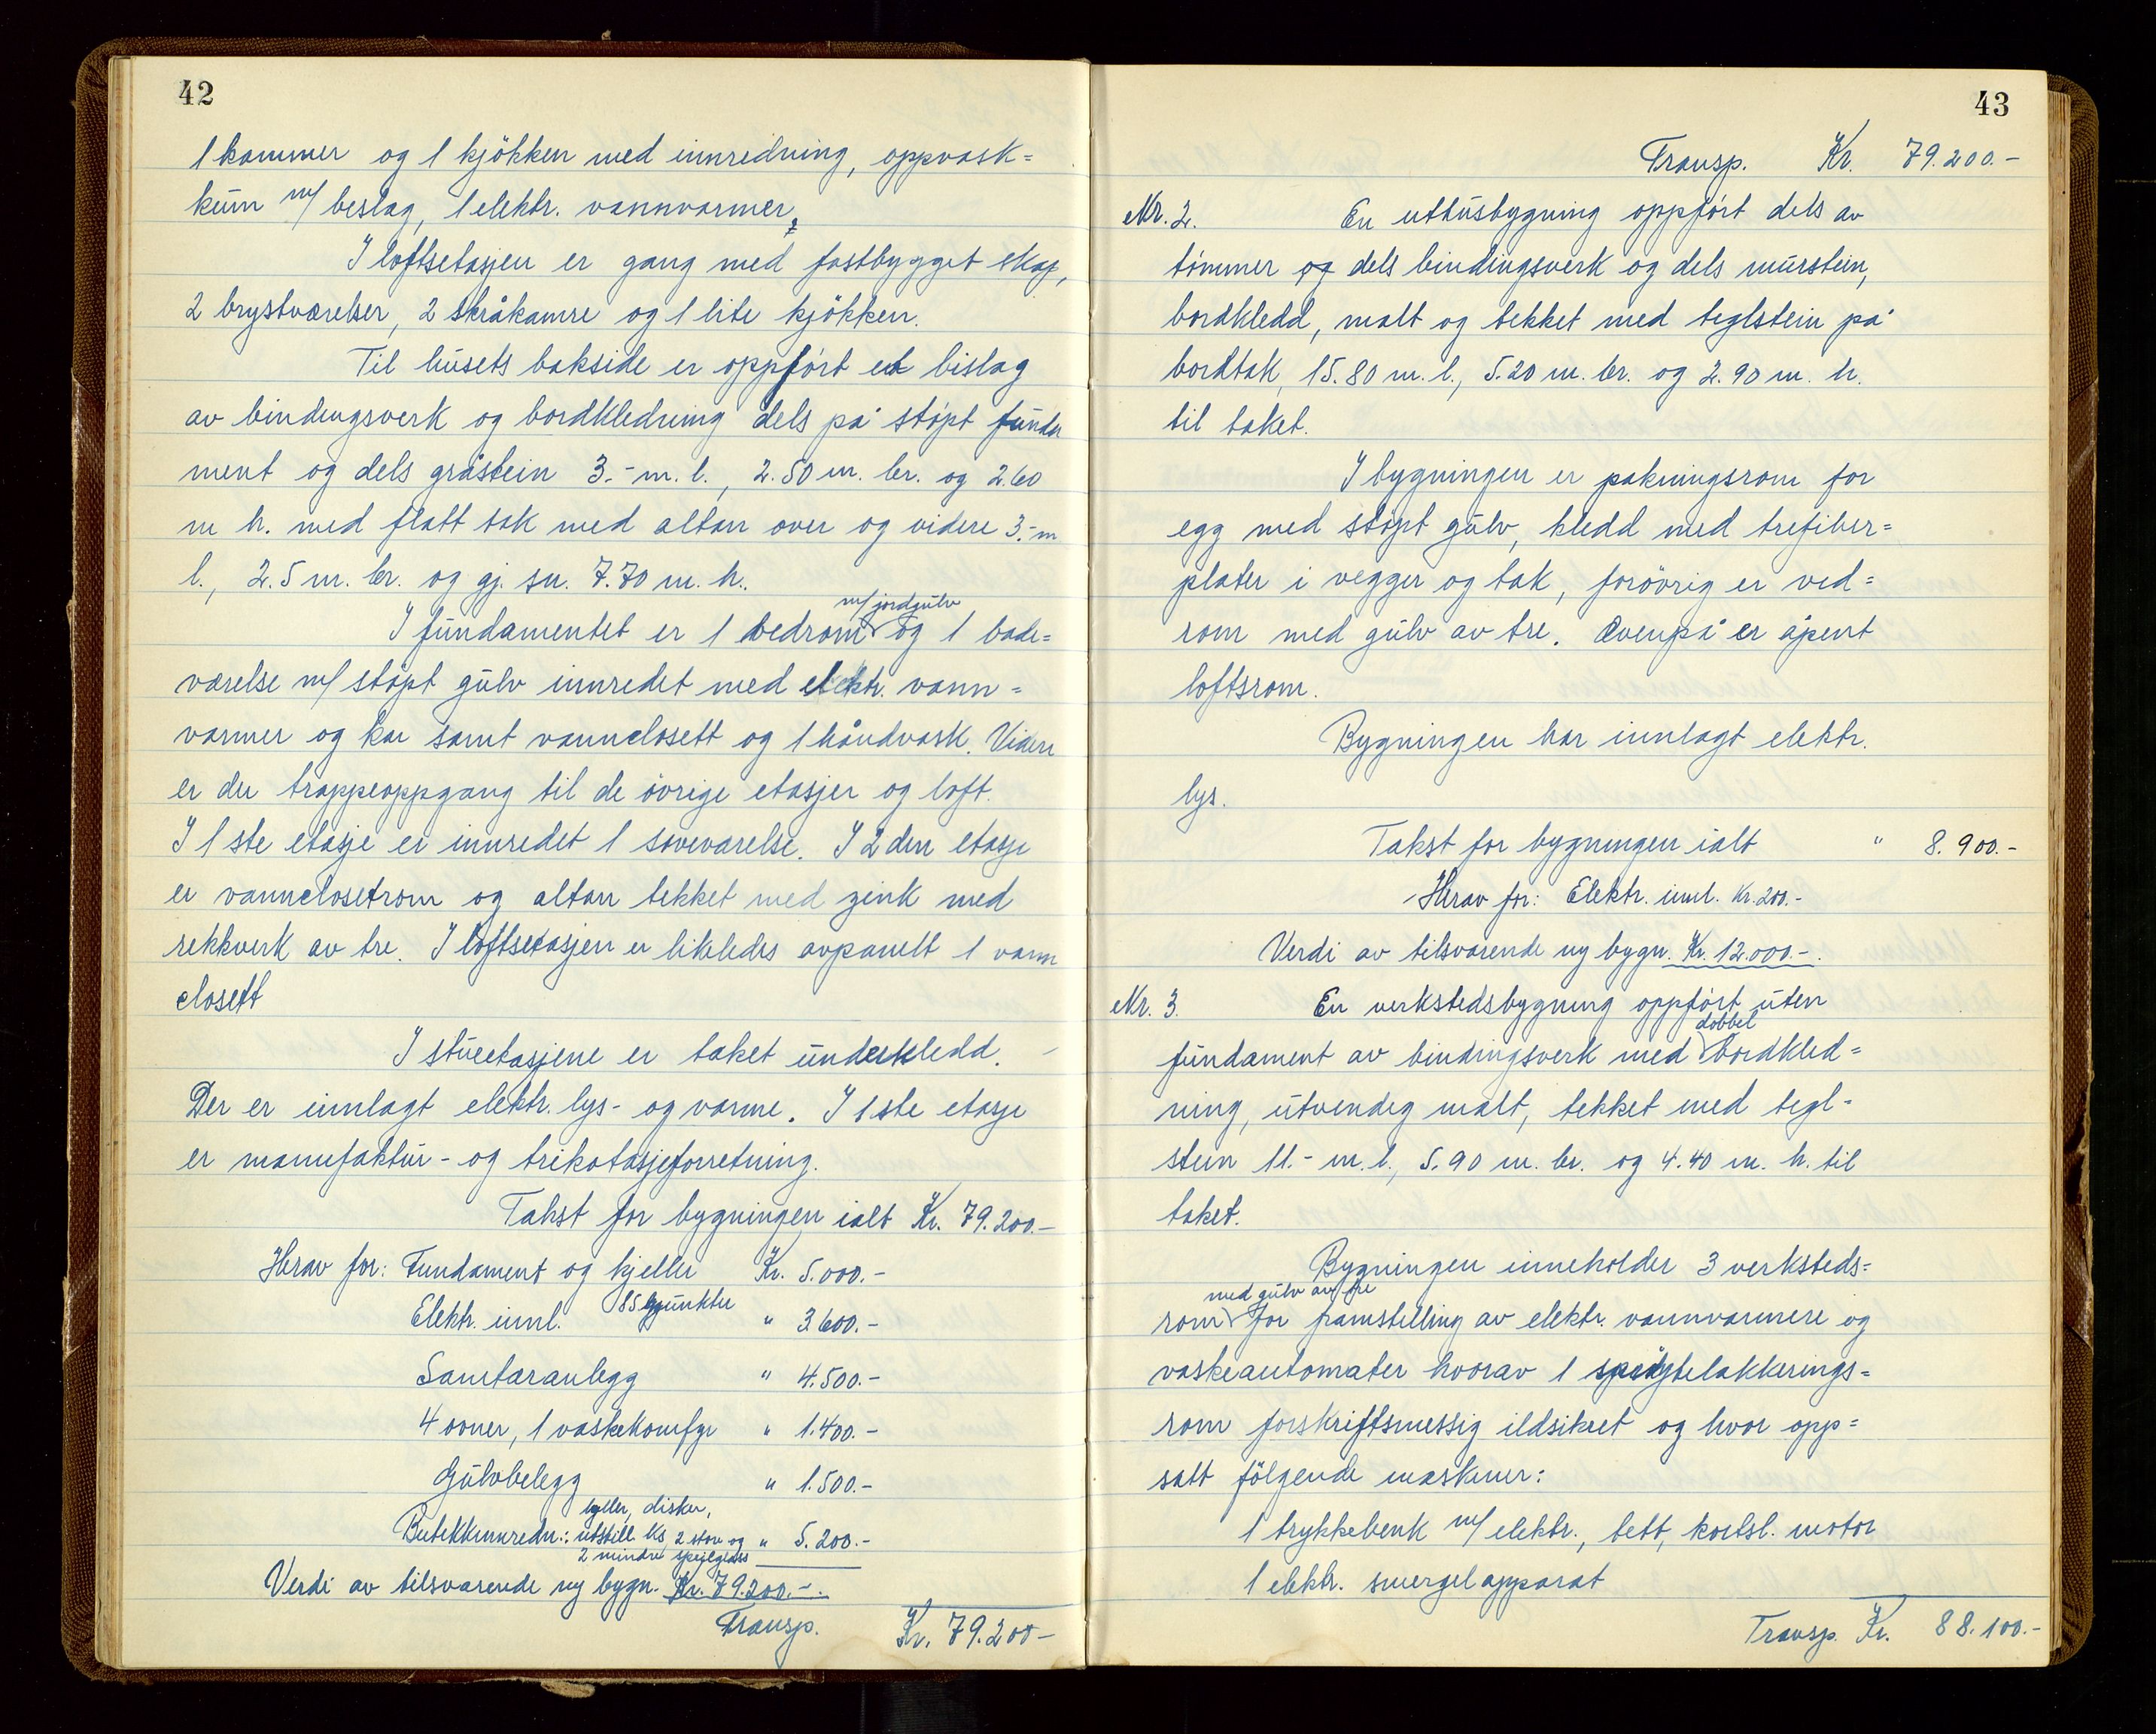 42
1 kammer og 1 kjökken med innredning, oppvask=
kum m/ beslag, 1 elektr. vannvarmer.
I loftsetasjen er gang med fastbygget skap,
2 brystværelser, 2 skråkamre og 1 lite kjökken.
Til husets bakside er oppfört et bislag
av bindingsverk og bordkledning dels på stöpt funda
ment og dels gråstein 3.- m. l., 2.50 m. br. og 2.60
m h. med flatt tak med altan over og videre 3.- m
l., 2.5 m. br. og gj. sn. 7.70 m. h..
m/jordgulv
I fundamentet er 1 vedrom og 1 bade=
værelse m/ stöpt gulv innredet med elektr. vann=
varmer og kar samt vannclosett og 1 håndvask. Videre
er der trappeoppgang til de övrige etasjer og loft.
I 1ste etasje er innredet 1 soveværelse. I 2den etasje
er vannclosetrom og altan tekket med zink med
rekkverk av tre. I loftsetasjen er likeledes avpanelt 1 vann
closett
I stueetasjene er taket underkledd.
Der er innlagt elektr. lys- og varme. I 1ste etasje
er manufaktur- og trikotasjeforretning.
Takst for bygningen ialt Kr. 79.200.-
Herav for: Fundament og kjeller Kr. 5.000.-
Elektr. innl. 85 punkter " 3.600.-
Sanitæranlegg " 4.500.-
4 ovner, 1 vaskekomfyr " 1.400.-
Gulvbelegg " 1.500.-
hyller, disker,
Butikkinnredn.: utstill. ks, 2 store og " 5.200.-
2 mindre speilglass
Verdi av tilsvarende ny bygn. Kr. 79.200.-.
Transp. Kr. 79.200-
43
Transp. Kr. 79.200.-
Nr. 2. En uthusbygning oppfört dels av
tömmer og dels bindingsverk og dels murstein,
bordkledd, malt og tekket med teglstein på
bordtak, 15.80 m. l., 5.20 m. br. og 2.90 m. h.
til taket.
I bygningen er pakningsrom for
egg med stöpt gulv, kledd med trefiber=
plater i vegger og tak, forövrig er ved=
rom med gulv av tre. Ovenpå er åpent
loftsrom.
Bygningen har innlagt elektr.
lys.
Takst for bygningen ialt " 8.900.-
Herav for: Elektr. innl. Kr. 200.-
Verdi av tilsvarende ny bygn. Kr. 12.000.-.
Nr. 3. En verkstedsbygning oppfört uten
dobbel
fundament av bindingsverk med bordkled=
ning, utvendig malt, tekket med tegl=
stein 11.- m. l., 5.90 m. br. og 4.40 m. h. til
taket.
Bygningen inneholder 3 verksteds=
med gulv av tre
rom for framstilling av elektr. vannvarmere og
vaskeautomater hvorav 1 spröytelakkerings=
rom forskriftsmessig ildsikret og hvor opp=
satt fölgende maskiner:
1 trykkebenk m/ elektr., tett, kortsl. motor
1 elektr. smergelapparat
Transp. Kr. 88.100.-